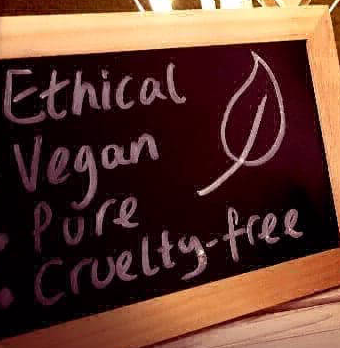 Ethical
Vegan
• Pure
• Cruelty-free